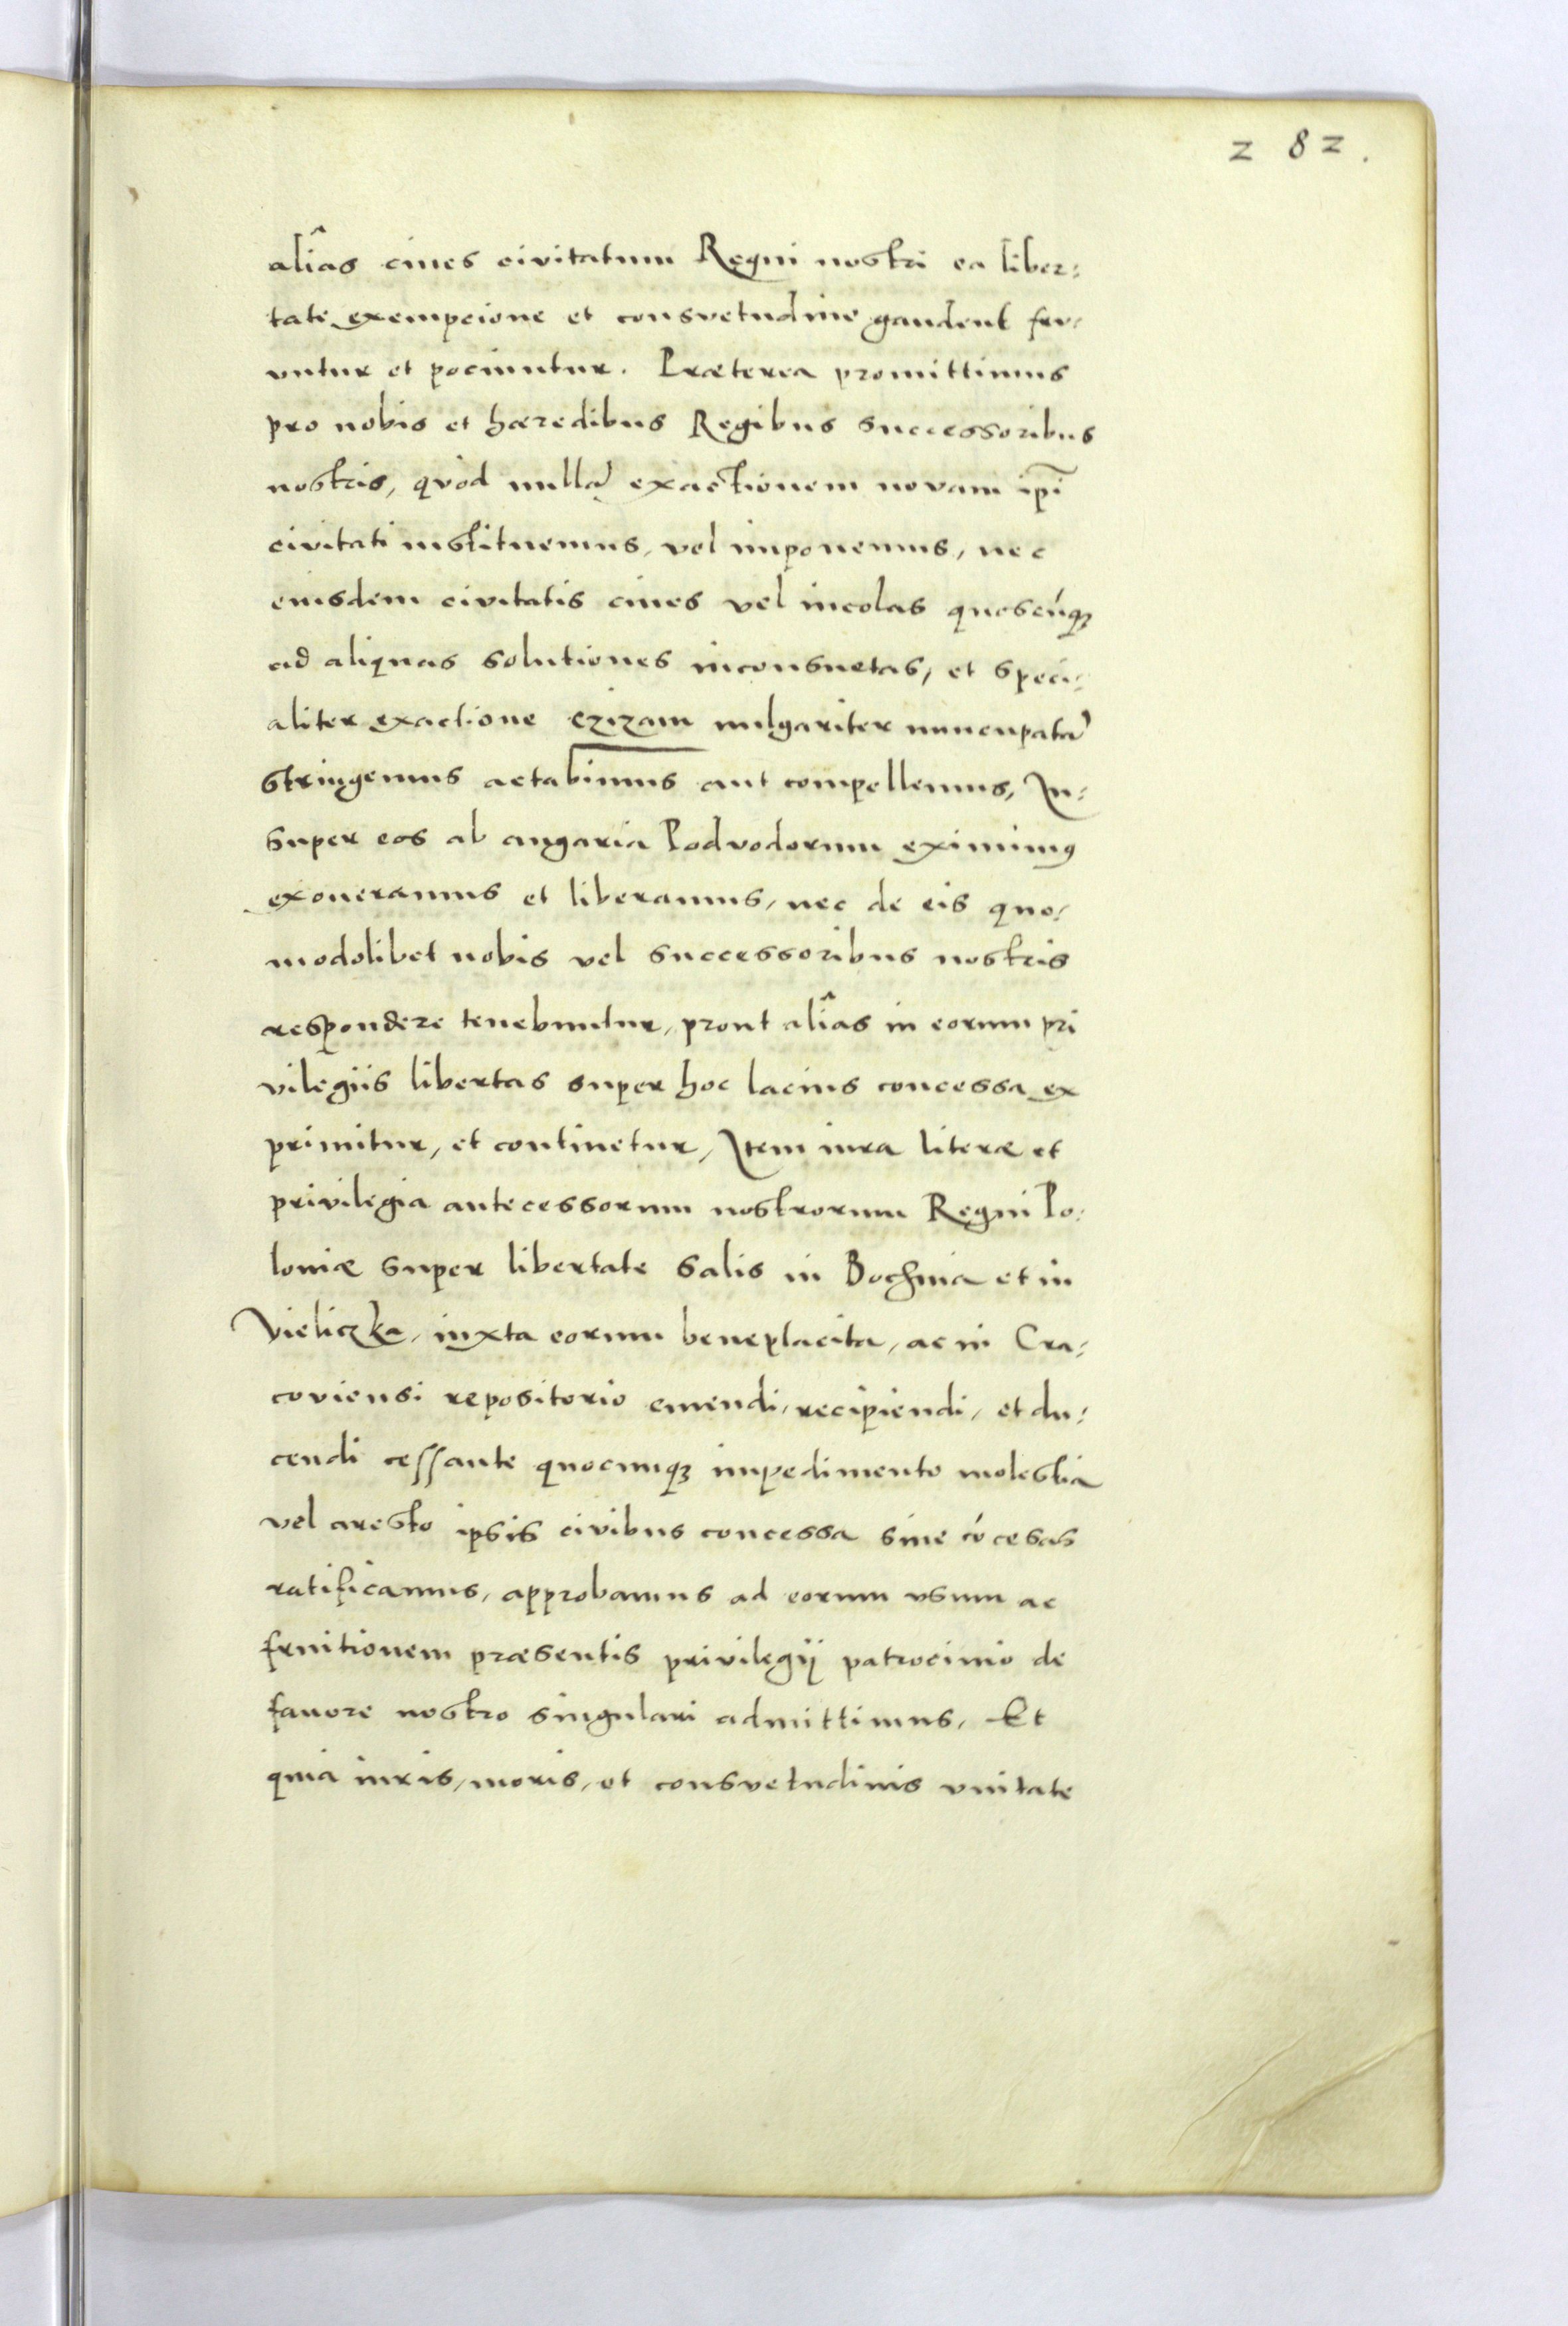 282.
aliâs ciues civitatum Regni nostri ea liber:
tate exempcione et consvetudine gaudent fru:
untur et pociuntur. Præterea promittimus
pro nobis et hæredibus Regibus successoribus
nostris, quòd nullã exactionem novam ip̃i
civitati instituemus, vel imponemus, nec
eiusdem civitatis ciues vel incolas quoscũq;
ad aliquas solutiones inconsuetas, et speci:
aliter exactione czizam uulgariter nuncupatã
stringemus actabimus aut compellemus, In:
super eos ab angaria Podvodorum eximimus
exoneramus et liberamus, nec de eis quo:
modolibet nobis vel successoribus nostris
respondere tenebuntur, prout aliâs in eorum pri
vilegiis libertas super hoc lacius concessa ex
primitur, et continetur, Item iura literæ et
privilegia antecessorum nostrorum Regni Po:
loniæ super libertate Salis in Bochnia et in
Vieliczka, iuxta eorum beneplacita, ac in Cra:
coviensi repositorio emendi, recipiendi, et du:
cendi cessante quocunq; impedimento molestia
vel aresto ipsis civibus concessa sive cõcesas
ratificamus, approbamus ad eorum vsum ac
fruitionem præsentis privilegij patrocinio de
favore nostro singulari admittimus, Et
quia iuris, moris, et consvetudinis vnitate